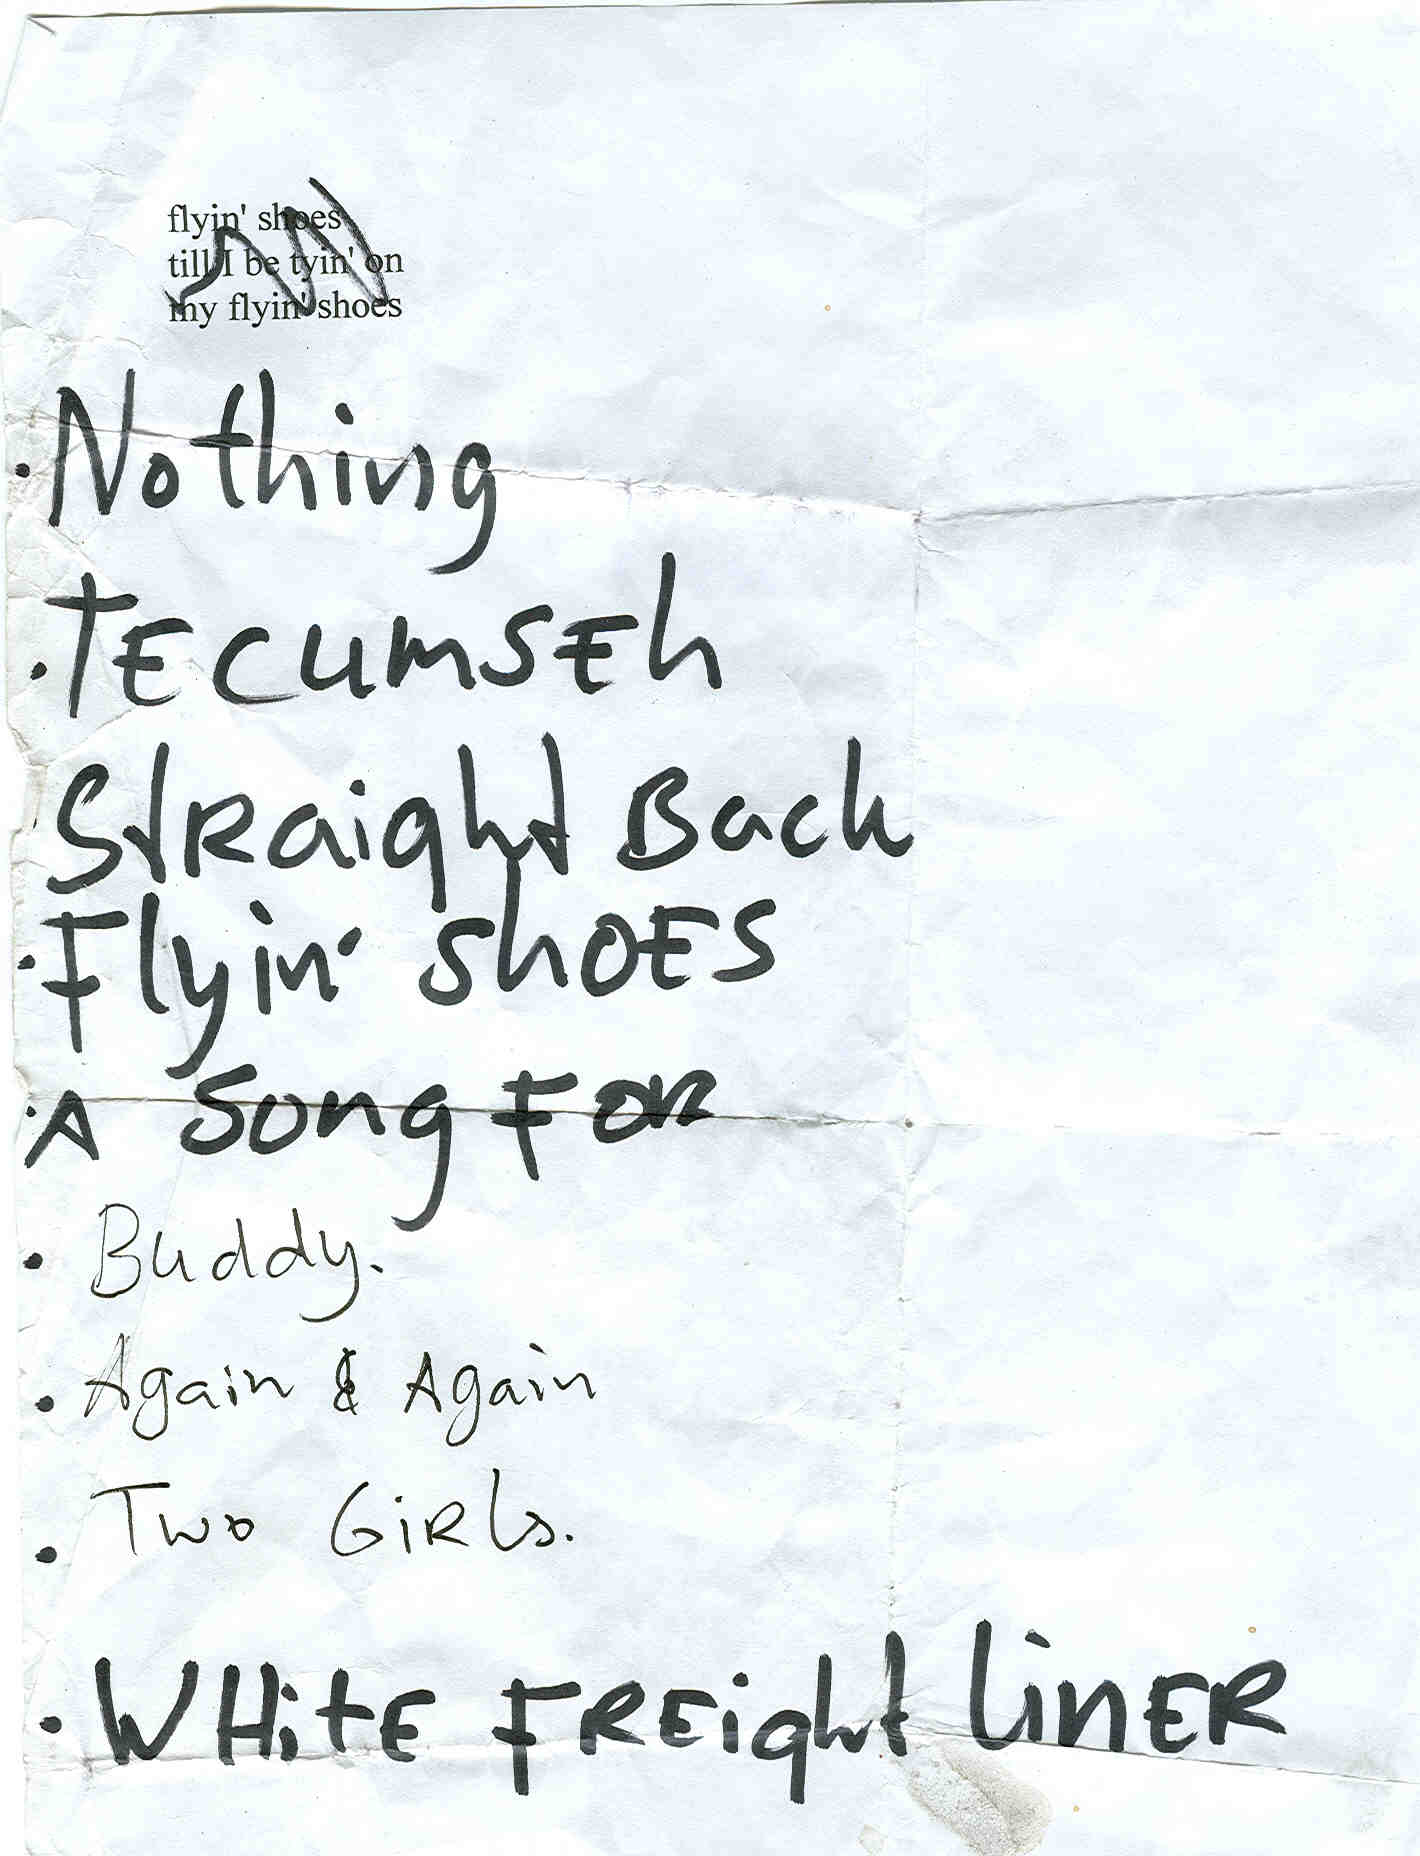 flyin' shoes
till I be tyin' on
my flyin' shoes
• Nothing
• TECUMSEh
StRaight Back
• Flyin' ShOES
• A Song FOR
• Buddy.
• Again & Again
• Two GiRls.
• WHitE FREight LinER